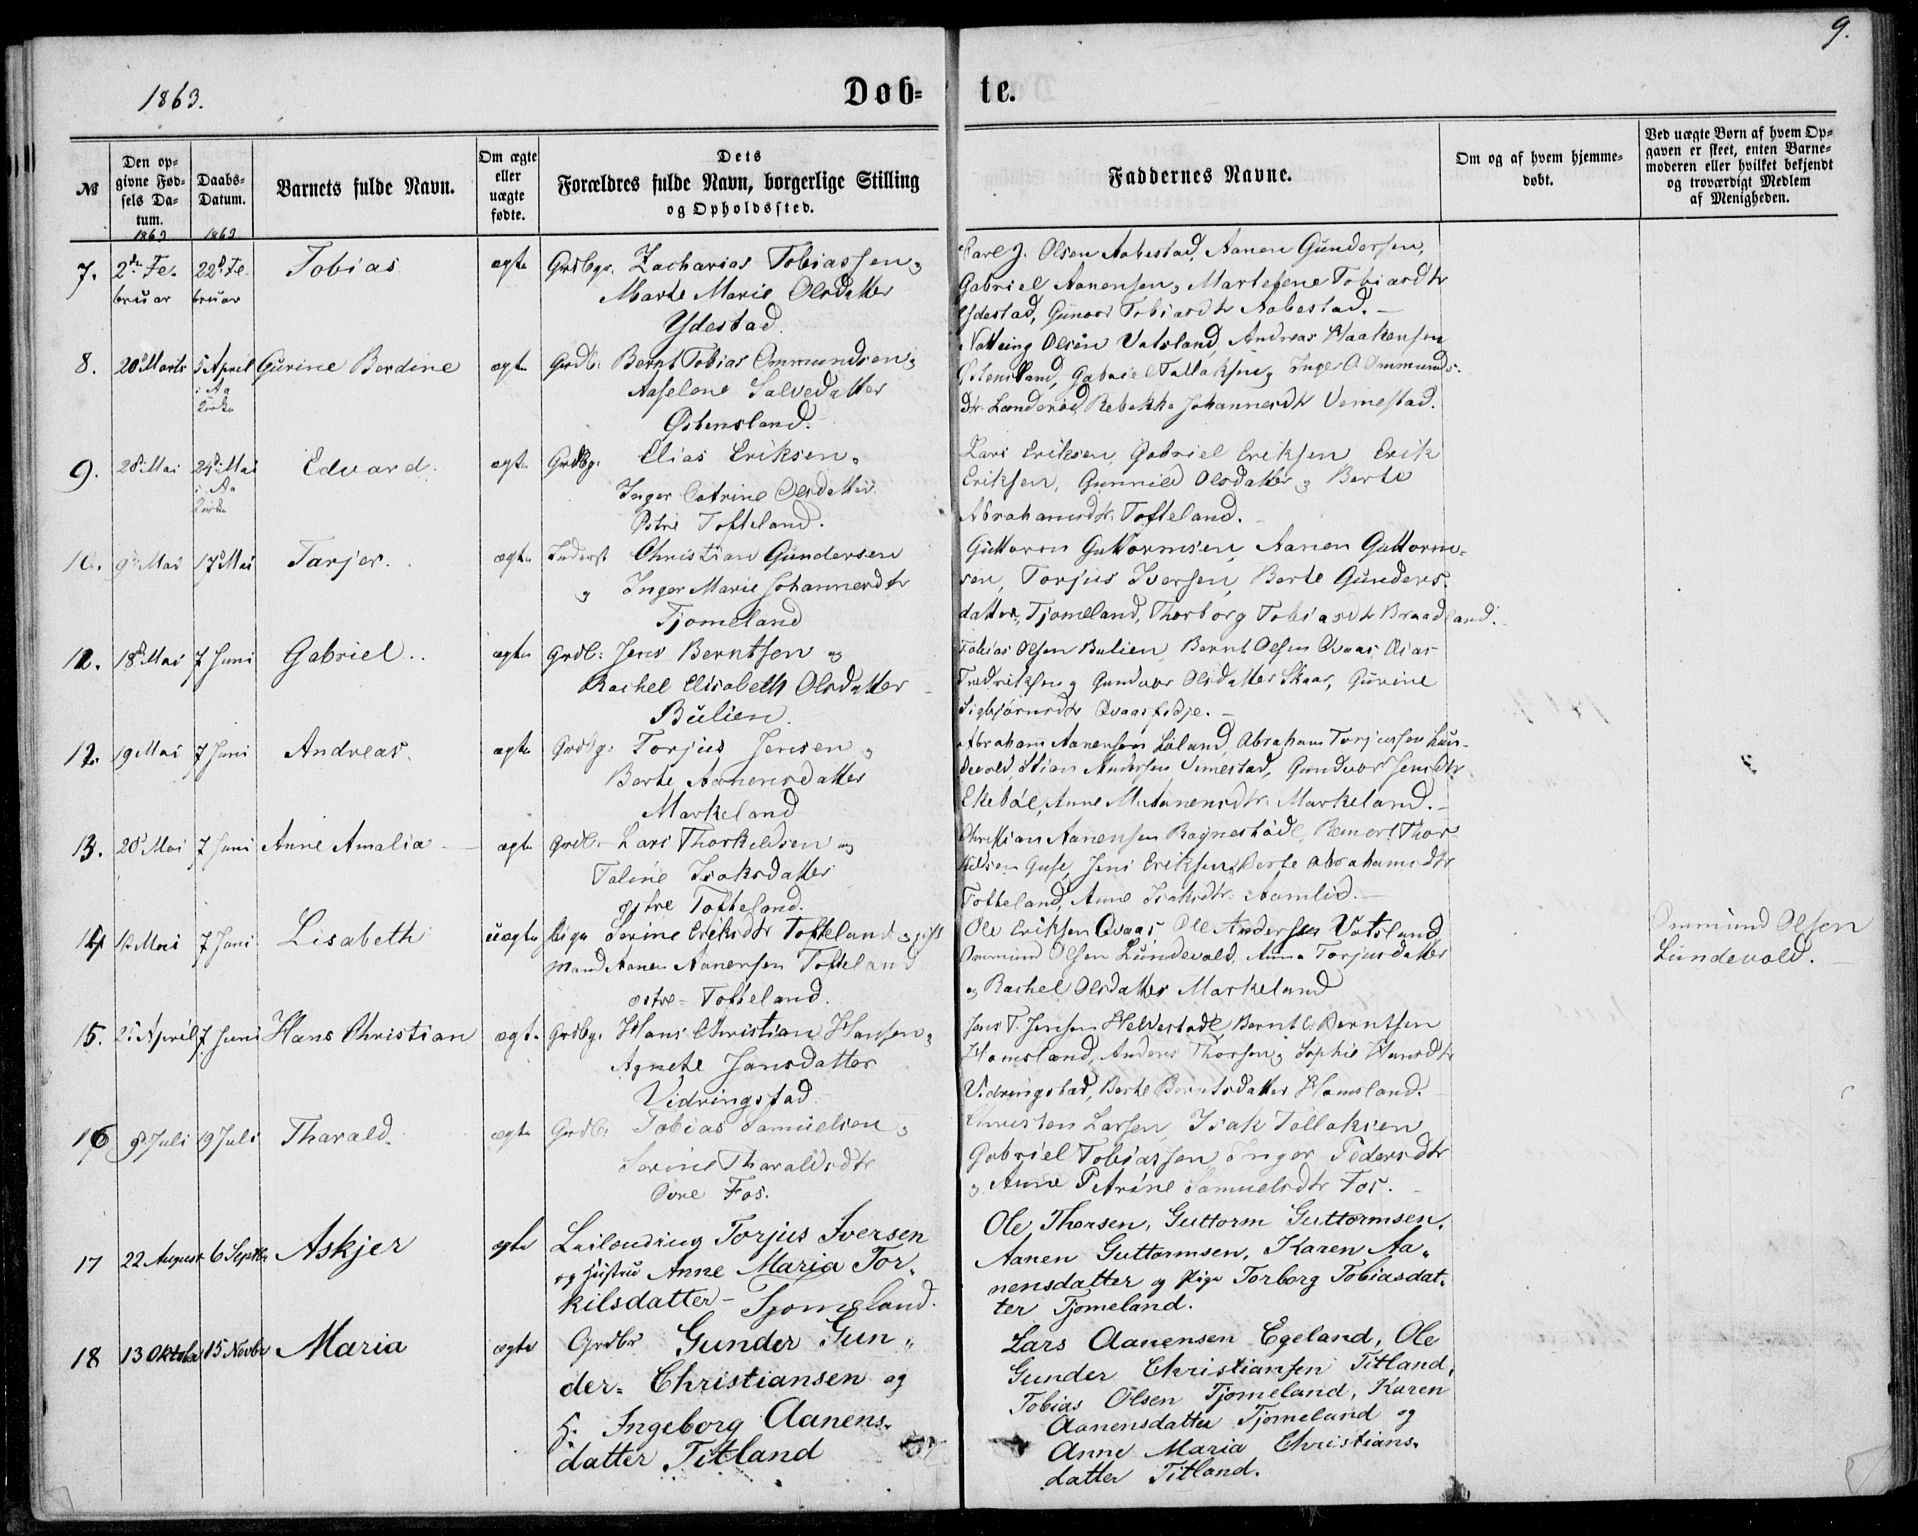 9.
1863.
Døb- te.
№
Den op-
givne Fød-
sels Da-
tum.
1863
Daabs-
Datum.
1863
Barnets fulde Navn.
Om ægte
eller
uægte
fødte.
Dets
Forældres fulde Navn, borgerlige Stilling
og Opholdssted.
Faddernes Navne.
Om og af hvem hjemme-
døbt.
Ved uægte Børn af hvem Op-
gaven er skeet, enten Barne-
moderen eller hvilket bekjendt
og troværdigt Medlem
af Menigheden.
7. 2de Fe- 22d Fe- Tobias ægte Grdbgr. Zacharias Tobiassen og
bruar bruar Marte Marie Olsdatter
Ydestad.
Carl J. Olsen Aabestad, Aanen Gundersen,
Gabriel Aanensen, Martefene Tobiasdtr
Ydestad, Gunvor Tobiasdtr Aabestad.
8. 20 Marts 5 April Gurine Berdine ægte Grdb: Bernt Tobias Ommundsen og
i Aa
Kirke
Aaselene Salvedatter
Østensland.
Olsen Vatsland, Andreas Haakensen
Østensland, Gabriel Tallaksen, Inger O. Ommunds-
dtr. Landerød, Rebekka Johannesdtr Vemestad.
9. 28 Mai 24 Mai Edvard. ægte Grdbg: Elias Eriksen
i Aa
Kirke
Inger Catrine Olsdatter
Østre Tofteland.
Lars Eriksen, Gabriel Eriksen Erik
Eriksen, Gunnild Olsdatter og Berte
Abrahamsdtr. Tofteland.
10. 9 Mai 17 Mai Tarjer. ægte Inderst Christian Gundersen
og Inger Marie Johannesdtr
Tjomeland
Guttorm Guttormsen, Aanen Guttorm-
sen, Torjus Iversen, Berte Gunders-
datter, Tjomeland, Thorborg Tobiasdtr Braadland.
12. 18 Mai 7 Juni Gabriel. ægte Grdb: Jens Berntsen og
Rachel Elisabeth Olsdatter
Bulien.
Tobias Olsen Bulien, Bernt Olsen Qvaas, Osias
Fredriksen, Gundvor Olsdatter Skaar, Gurine
Sigbjørnsdtr Qvaasfidje.
12. 19 Mai 7 Juni Andreas. ægte Grdbg: Torjus Jensen og
Berte Aanensdatter
Markeland
Abraham Aanensen Løland, Abraham Torjussen Lun-
devold, Stian Andersen Vemestad, Gundvor Jensdtr
Ekebøl, Anne M. Aanensdtr. Markeland.
13. 20 Mai 7 Juni Anne Amalia ægte Grdb: Lars Thorkildsen og
Taline Isaksdatter
østre Tofteland.
Christian Aanensen Ragnestad, Bernert Thor-
kildsen Guse, Jens Eriksen, Berte Abrahamsdtr
Tofteland, Anne Isaksdtr. Aamlid.
14 12 Mai 7 Juni Lisabeth uægte Pige Serine Eriksdtr Tofteland og gift
Mand Aanen Aanensen Tofteland
østre Tofteland.
Ole Eriksen Qvaas, Ole Andersen Vatsland
Ommund Olsen Lundevold, Anna Torjusdatter
og Rachel Olsdatter Markeland
Ommund Olsen
Lundevold.
15. 2 April 7 Juni Hans Christian ægte Grdbg: Hans Christian Hansen og
Agnete Jansdatter
Vidringstad.
Jens T. Jensen Helvestad, Bernt C. Berntsen
Homsland, Anders Thorsen og Sophie Hansdtr
Vidringstad, Berte Berntsdatter Homsland.
16 9 Juli 19 Juli Tharald. ægte Grdb: Tobias Samuelsen og
Serine Tharaldsdtr
Øvre Fos.
Christen Larsen, Isak Tollaksen
Gabriel Tobiassen, Inger Pedersdtr
og Anne Petrine Samuelsdtr Fos.
17 22 August 6 Septbr Askjer ægte Leilænding Torjus Iversen
og Hustru Anne Maria Tor-
kilsdatter - Tjomeland.
Ole Thorsen, Guttorm Guttormsen,
Aanen Guttormsen, Karen Aa-
nensdatter og Pige Torborg Tobiasdat-
ter Tjomeland.
18 13 Oktober 15 Novbr Maria ægte Grdbr Gunder Gun-
der- Christiansen og
H. Ingeborg Aanens-
datter Titland
Lars Aanensen Egeland, Ole
Gunder Christiansen Titland,
Tobias Olsen Tjomeland, Karen
Aanensdatter Tjomeland og
Anne Maria Christians-
datter Titland.